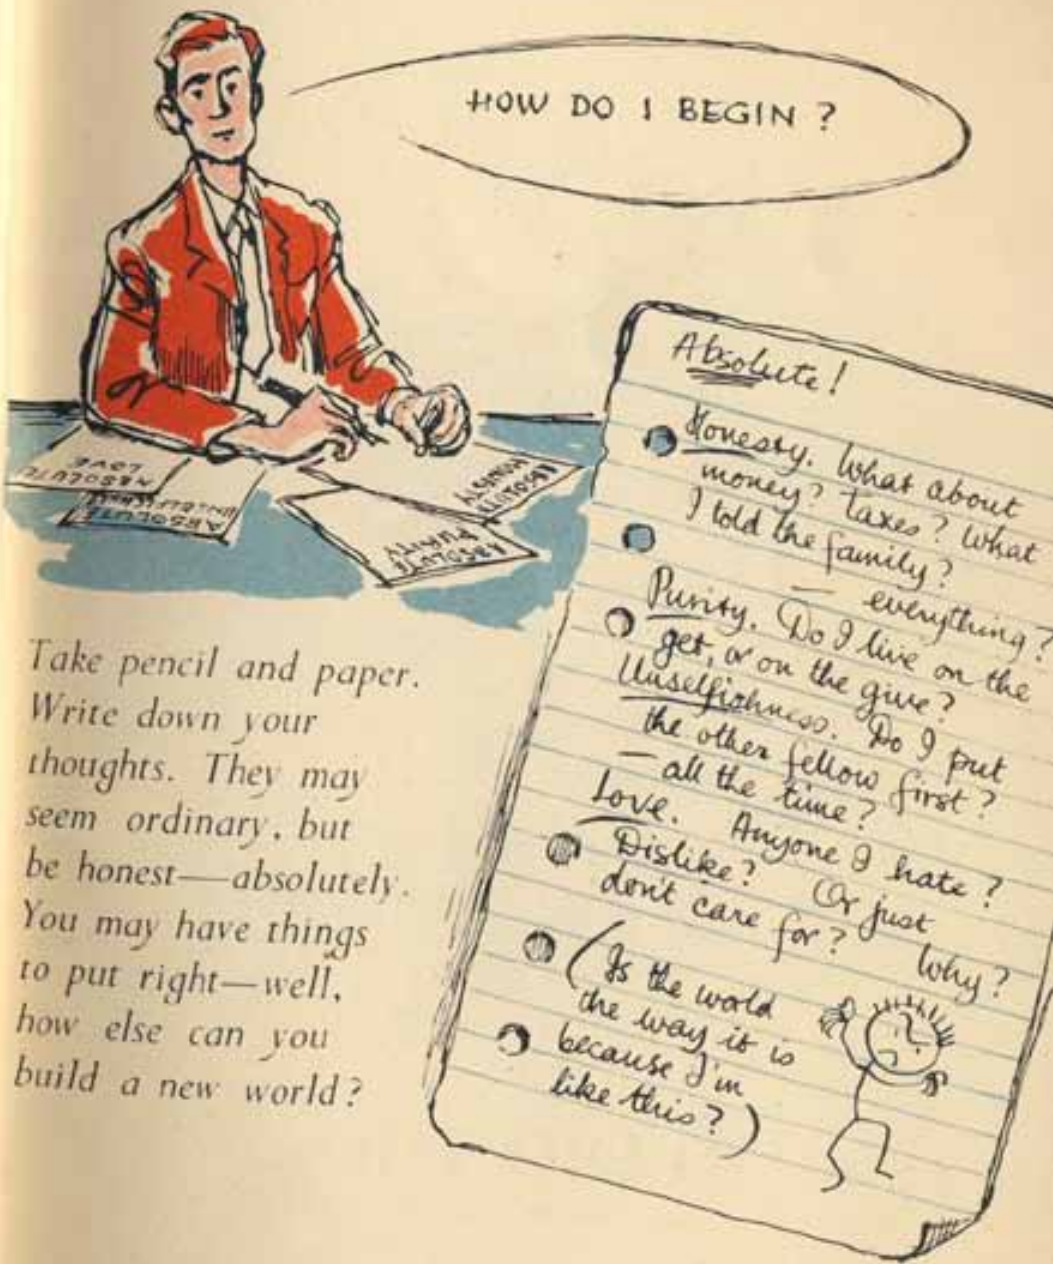 HOW DO I BEGIN ?
ABSOLUTE
LOVE
ABSOLUTE
UNSELFISHNESS
ABSOLUTE
HONESTY
ABSOLUTE
PURITY
Take pencil and paper.
Write down your
thoughts. They may
seem ordinary, but
be honest—absolutely.
You may have things
to put right—well,
how else can you
build a new world?
Absolute!
Honesty. What about
money? Taxes? What
I told the family?
— everything?
Purity. Do I live on the
get, or on the give?
Unselfishness. Do I put
the other fellow first?
— all the time?
Love. Anyone I hate?
Dislike? Or just
don't care for? Why?
(Is the world
the way it is
because I'm
like this?)